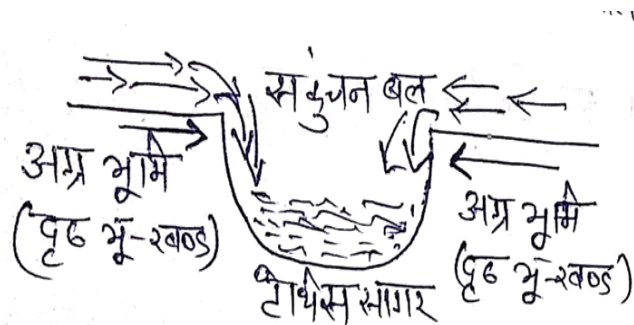 सकुंचन बल
अग्र भूमि
(दृढ भू-खण्ड)
अग्र भूमि
(दृढ भू-खण्ड)
टेथिस सागर